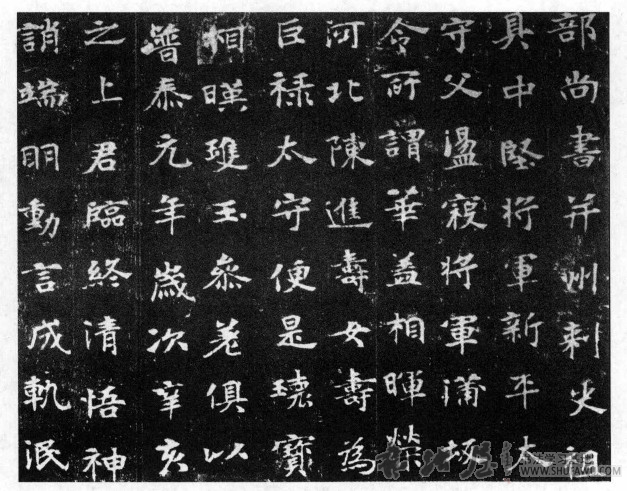 部尚書并州刺史祖
具中堅將軍新平太
守父盪寇將軍蒲坂
令所謂華蓋相暉榮
河北陳進壽女壽為
巨祿太守便是瓌寶
相暎璡玉參差俱以
普泰元年歲次辛亥
之上君臨終清悟神
誚端明動言成軌泯
WWW.SHUFAWU.COM